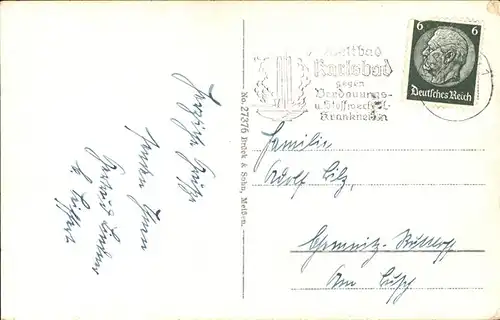 Herzliche Grüße
senden Ihnen
Gertrud
No. 27376 Brück & Sohn, Meißen.
Weltbad
Karlsbad
gegen
Verdauungs-
u. Stoffwechsel-
Krankheiten
6 6
Deutsches Reich
Familie
Adolf Bilz,
Chemnitz-
Am Busch